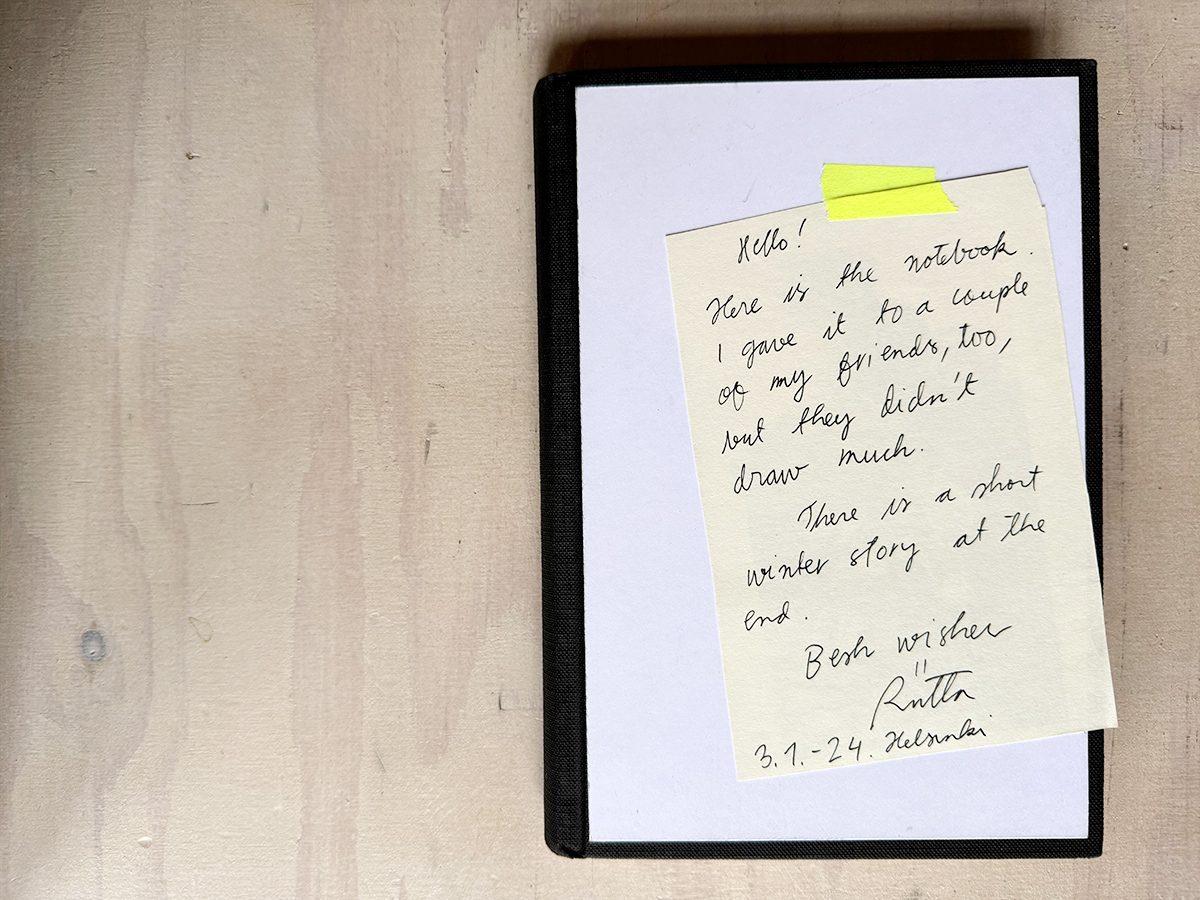 Hello!
Here is the notebook.
I gave it to a couple
of my friends, too,
but they didn't
draw much.
There is a short
winter story at the
end.
Best wishes
Riitta
3.1.-24. Helsinki